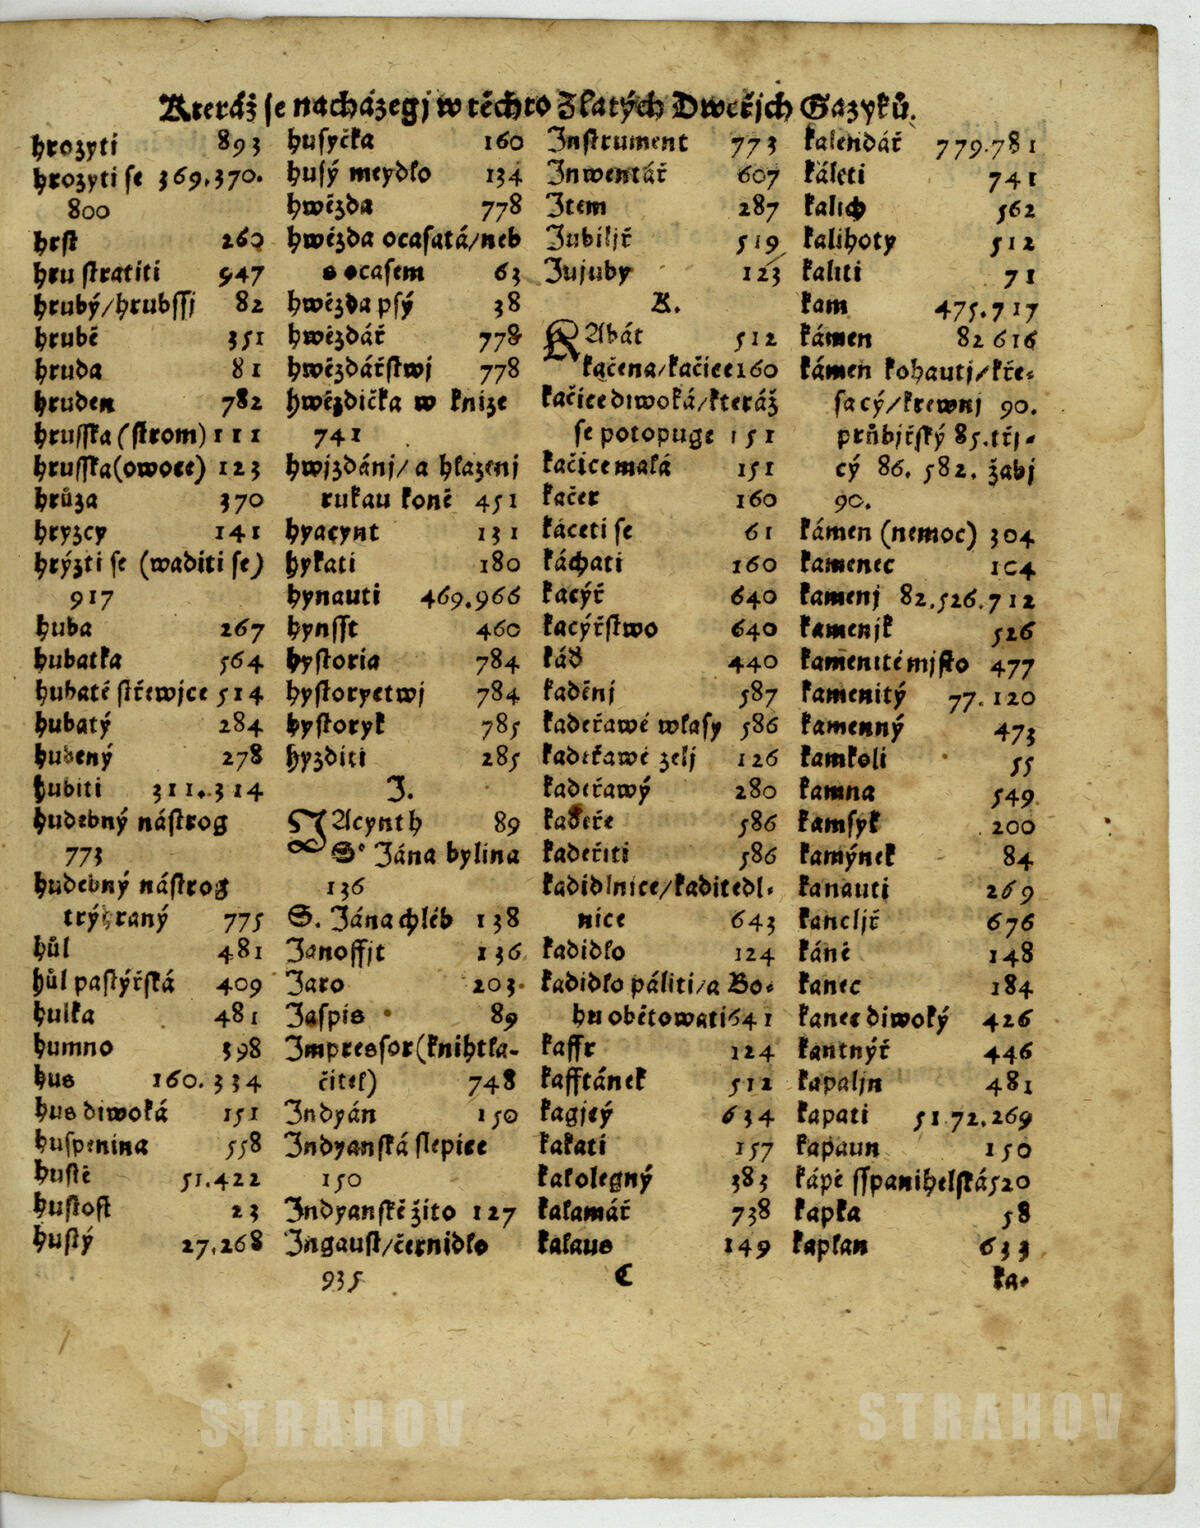 Kteráž se nacházegj w těchto Zlatých Dweřjch Gazyků.
hrozyti 893
hrozyti se 369.370.
800
hrst 260
hru stratiti 947
hrubý/hrubssj 82
hrubě 351
hruda 81
hruden 782
hrusska (strom) 111
hrusska (owoce) 123
hrůza 370
hryzcy 141
hrýzti se (waditi se)
917
huba 267
hubatka 564
hubaté střewjce 514
hubatý 284
hubený 278
hubiti 311.314
hudebný nástrog
773
hudebný nástrog
trýhraný 775
hůl 481
hůl pastýřská 409
hulka 481
humno 398
hus 160.334
hus diwoká 151
huspenina 558
hustě 51.422
hustost 23
hustý 27.268
husyčka 160
husý meydlo 134
hwězda 778
hwězda ocasatá/neb
s ocasem 63
hwězda psý 38
hwězdář 778
hwězdářstwj 778
hwězdička w knize
741
hwjzdánj/a hlazenj
rukau koně 451
hyacynt 131
hykati 180
hynauti 469.966
hynsst 460
hystoria 784
hystoryetwj 784
hystoryk 785
hyzditi 285
J.
JAcynth 89
S° Jána bylina
136
S. Jána chléb 138
Janoffjt 136
Jaro 203.
Jaspis 89
Impressor (knihtla-
čitel) 748
Indyán 150
Indyanská slepice
150
Indyanské žito 127
Ingaust/černidlo
935
Instrument 773
Inwentář 607
Item 287
Jubiljř 519
Jujuby 123
K.
KAbát 512
kačena/kačice 160
kačice diwoká/kteráž
se potopuge 151
kačice malá 151
kačer 160
káceti se 61
káchati 160
kacýř 640
kacýřstwo 640
káď 440
kaděnj 587
kadeřawé wlasy 586
kadeřawé zelj 126
kadeřawý 280
kadeře 586
kadeřiti 586
kadidlnice/kaditedl-
nice 643
kadidlo 124
kadidlo páliti/a Bo-
hu obětowati 641
kaffr 124
kafftánek 512
kagjcý 634
kakati 157
kakolegný 383
kalamář 738
kalaus 149
C
kalendář 779.781
káleti 741
kalich 562
kalihoty 512
kaliti 71
kam 475.717
kámen 82 616
kámen kohautj/kře-
sacý/krewnj 90.
průbjřský 85.třj-
cý 86. 582. žabj
90.
kámen (nemoc) 304
kamenec 104
kamenj 82.526.712
kamenjk 526
kamenité mjsto 477
kamenitý 77.120
kamenný 473
kamkoli 55
kamna 549
kamsyk 200
kamýnek 84
kanauti 269
kancljř 676
káně 148
kanec 184
kanec diwoký 426
kantnýř 446
kapaljn 481
kapati 51.72.269
kapaun 150
kápě sspanihelská 520
kapka 58
kaplan 633
ka-
STRAHOV STRAHOV